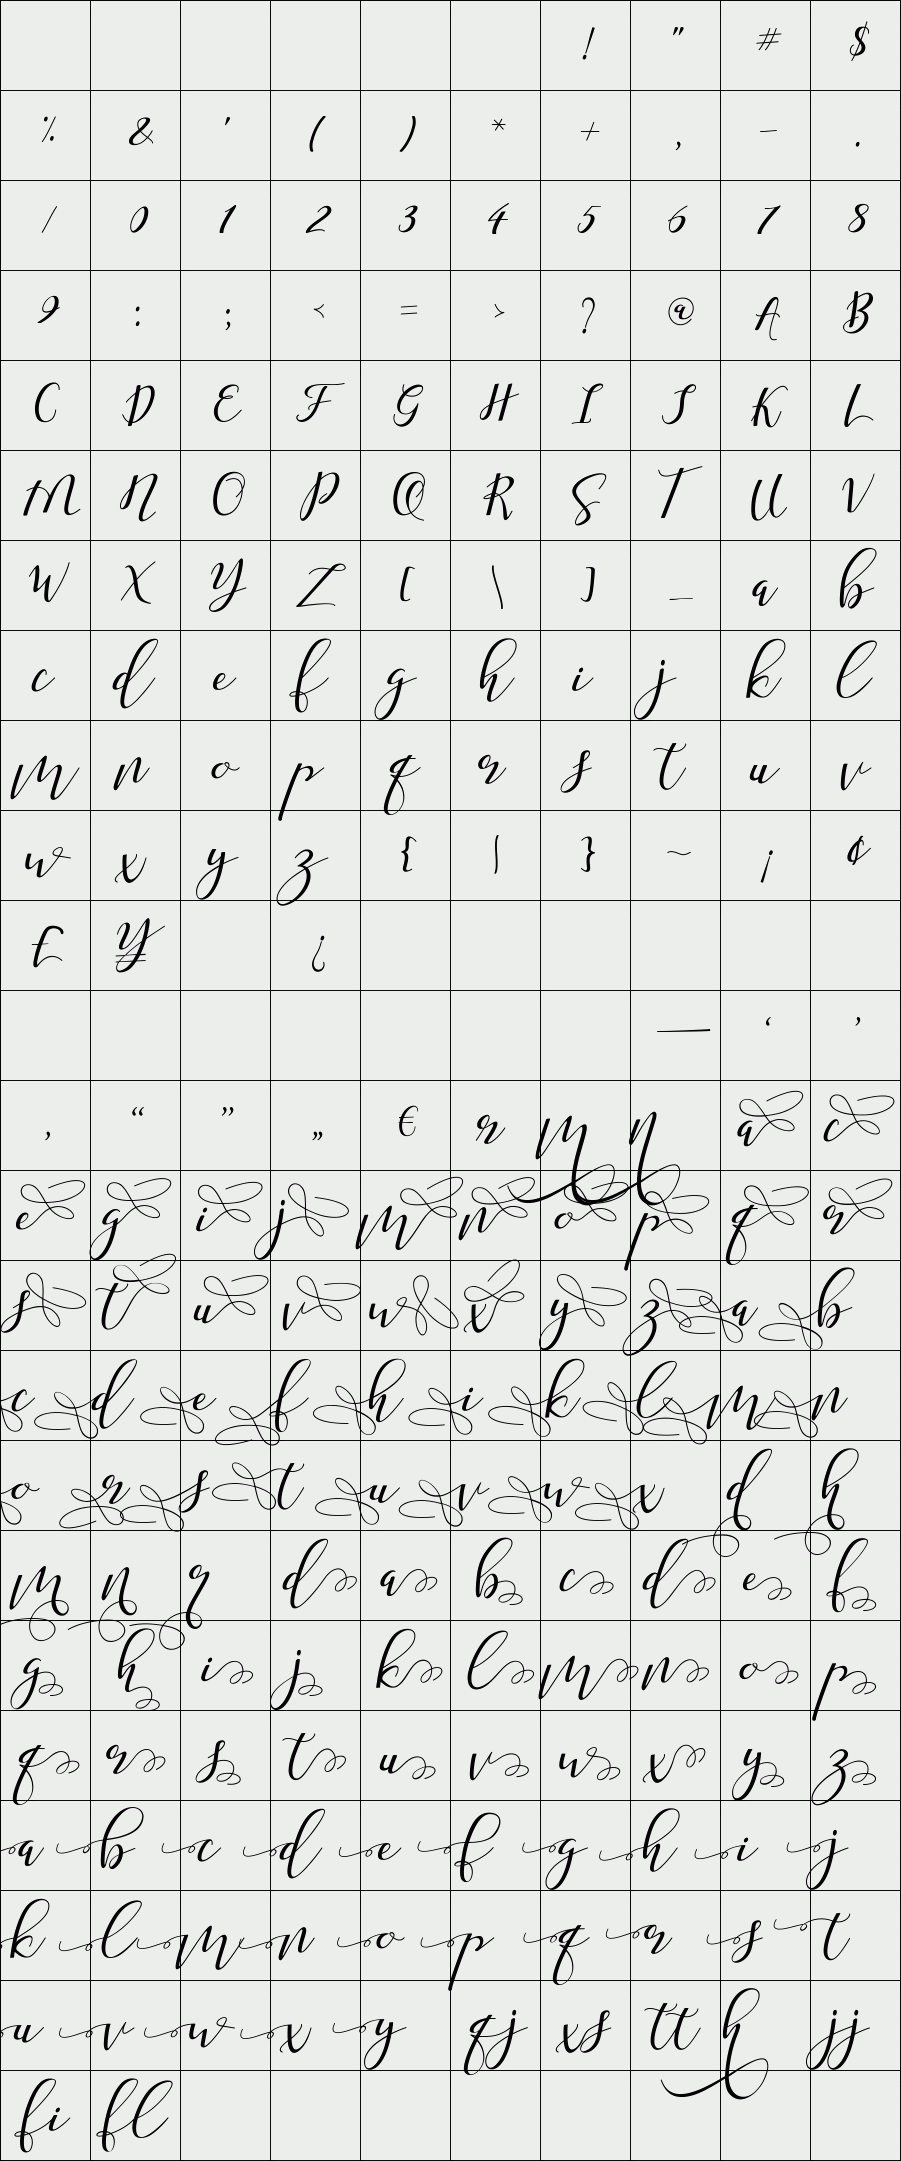 ! " # $
% & ' ( ) * + , – .
/ 0 1 2 3 4 5 6 7 8
9 : ; < = > ? @ A B
C D E F G H I J K L
M N O P Q R S T U V
W X Y Z [ \ ] _ a b
c d e f g h i j k l
m n o p q r s t u v
w x y z { | } ~ ¡ ¢
£ ¥ ¿
— ‘ ’
‚ “ ” „ € r m n a c
e g i j m n o p q r
s t u v w x y z a b
c d e f h i k l m n
o r s t u v w x d h
m n r d a b c d e f
g h i j k l m n o p
q r s t u v w x y z
a b c d e f g h i j
k l m n o p q r s t
u v w x y qj xs tt h jj
fi fl